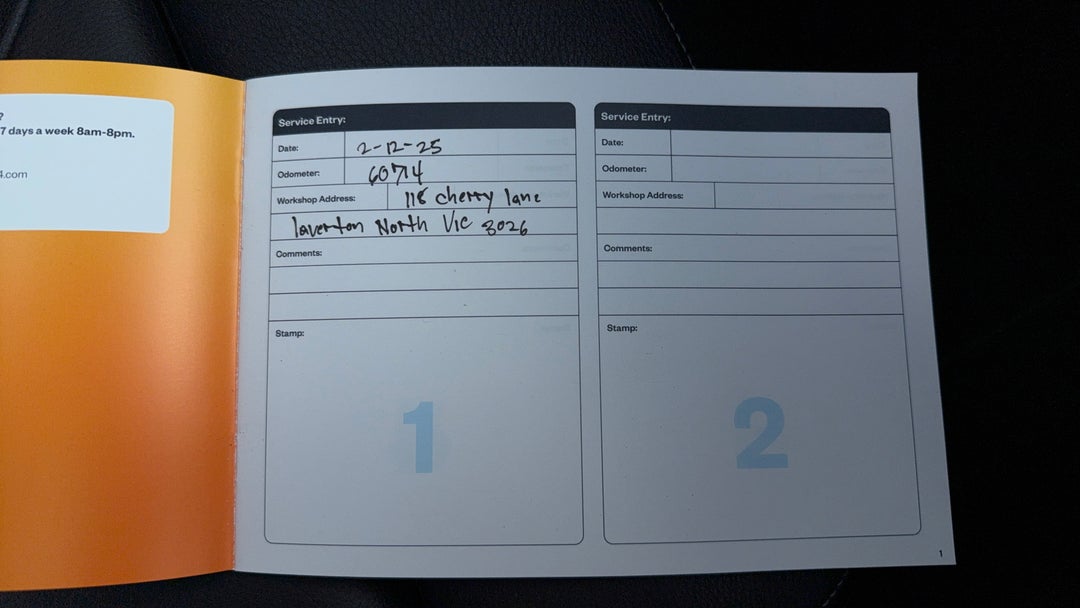 ?
7 days a week 8am-8pm.
4.com
Service Entry:
Date: 2-12-25
Odometer: 60714
Workshop Address: 118 cherry lane
laverton North Vic 3026
Comments:
Stamp:
1
Service Entry:
Date:
Odometer:
Workshop Address:
Comments:
Stamp:
2
1